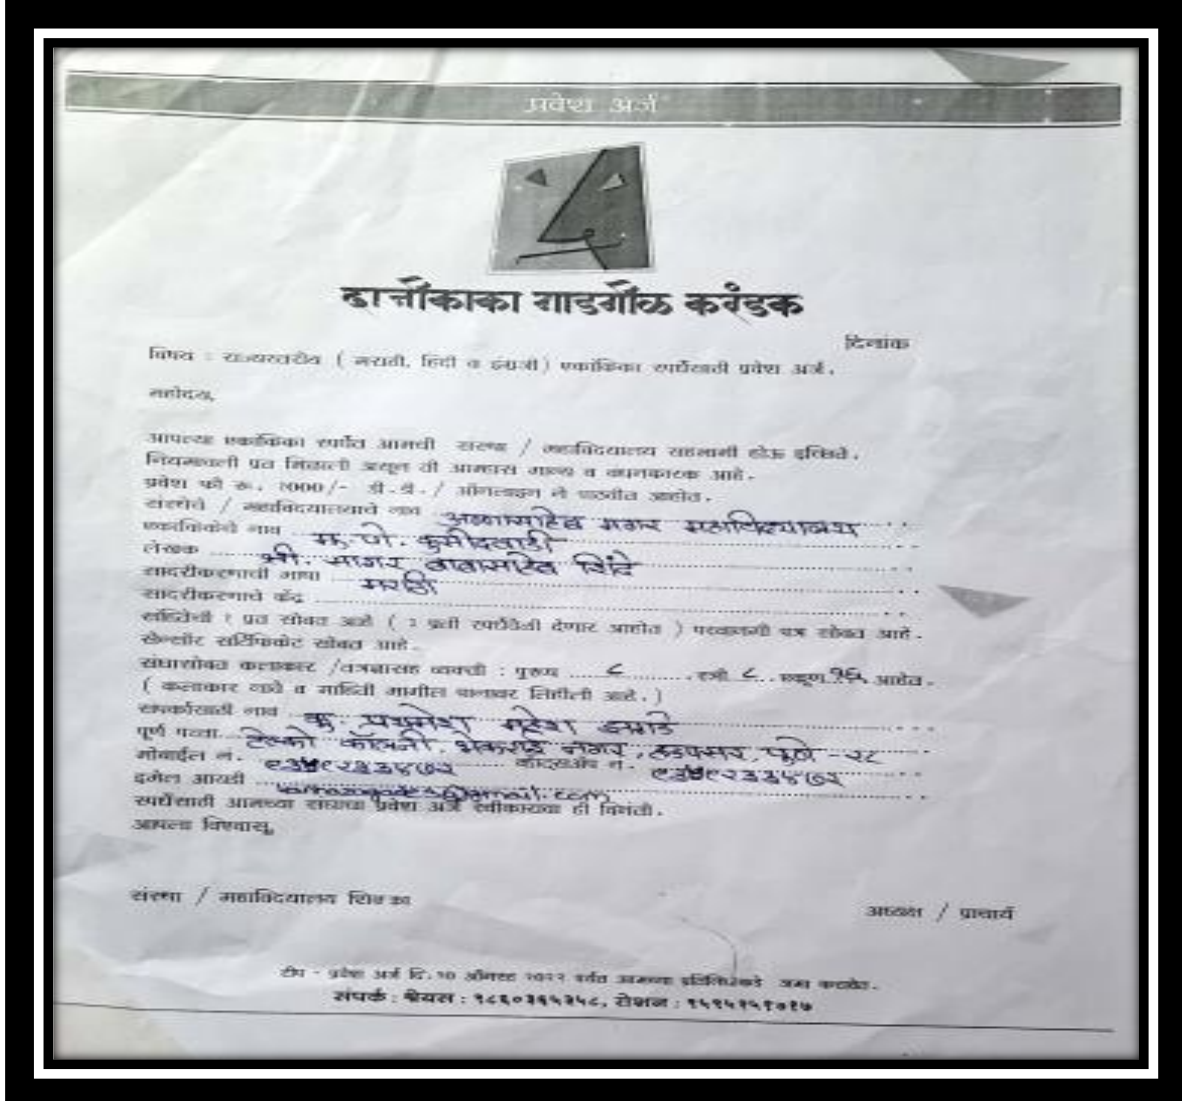 प्रवेश अर्ज
दाजीकाका गाडगीळ करंडक
दिनांक
विषय : राज्यस्तरीय ( मराठी, हिंदी व इंग्रजी ) एकांकिका स्पर्धेसाठी प्रवेश अर्ज.
महोदय,
आपल्या एकांकिका स्पर्धेत आमची संस्था / महाविद्यालय सहभागी होऊ इच्छिते.
नियमावली प्रत मिळाली असून ती आम्हास मान्य व बंधनकारक आहे.
प्रवेश फी रु. १०००/- डी.डी./ ऑनलाइन ने पाठवीत आहोत.
संस्थेचे / महाविद्यालयाचे नाव अण्णासाहेब मगर महाविद्यालय
एकांकिकेचे नाव मु.पो. कुसीदवाडी
लेखक श्री. सागर बाबासाहेब शिंदे
सादरीकरणाची भाषा मराठी
सादरीकरणाचे केंद्र
संहितेची १ प्रत सोबत आहे ( २ प्रती स्पर्धेवेळी देणार आहोत ) परवानगी पत्र सोबत आहे.
सेन्सॉर सर्टिफिकेट सोबत आहे.
संघासोबत कलाकार /तंत्रज्ञासह व्यक्ती : पुरुष ८ स्त्री ८ एकूण १६ आहेत.
( कलाकार नावे व माहिती मागील पानावर लिहीली आहे. )
संपर्कासाठी नाव कु. प्रथमेश महेश
पूर्ण पत्ता टेल्को कॉलनी, भेकराई नगर, हडपसर, पुणे - २८
मोबाईल नं. व्हॉट्सॲप नं.
इमेल आयडी
स्पर्धेसाठी आमच्या संघाचा प्रवेश अर्ज स्वीकारावा ही विनंती.
आपला विश्वासू,
संस्था / महाविद्यालय शिक्का
अध्यक्ष / प्राचार्य
टीप - प्रवेश अर्ज दि. १० ऑगस्ट २०२२ पर्यंत आमच्या प्रतिनिधीकडे जमा करावेत.
संपर्क : श्रेयस : रोशन :